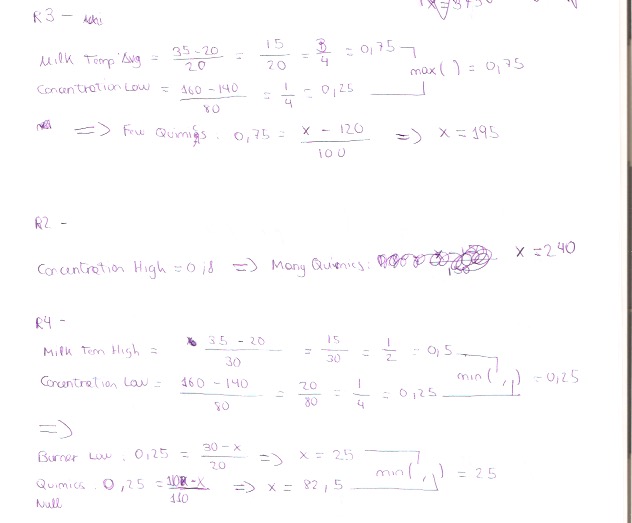 R3 -
Milk Temp Avg = 35-20/20 = 15/20 = 3/4 = 0,75
max( ) = 0,75
Concentration Low = 160-140/80 = 1/4 = 0,25
=> Few Quimics. 0,75 = x - 120/100 => x = 195
R2 -
Concentration High = 0,8 => Many Quimics: x = 240
R4 -
Milk Tem High = 35-20/30 = 15/30 = 1/2 = 0,5
min( , ) = 0,25
Concentration Low = 160-140/80 = 20/80 = 1/4 = 0,25
=>
Burner Low. 0,25 = 30-x/20 => x = 25
min( , ) = 25
Quimics. 0,25 = -x/110 => x = 82,5
Null